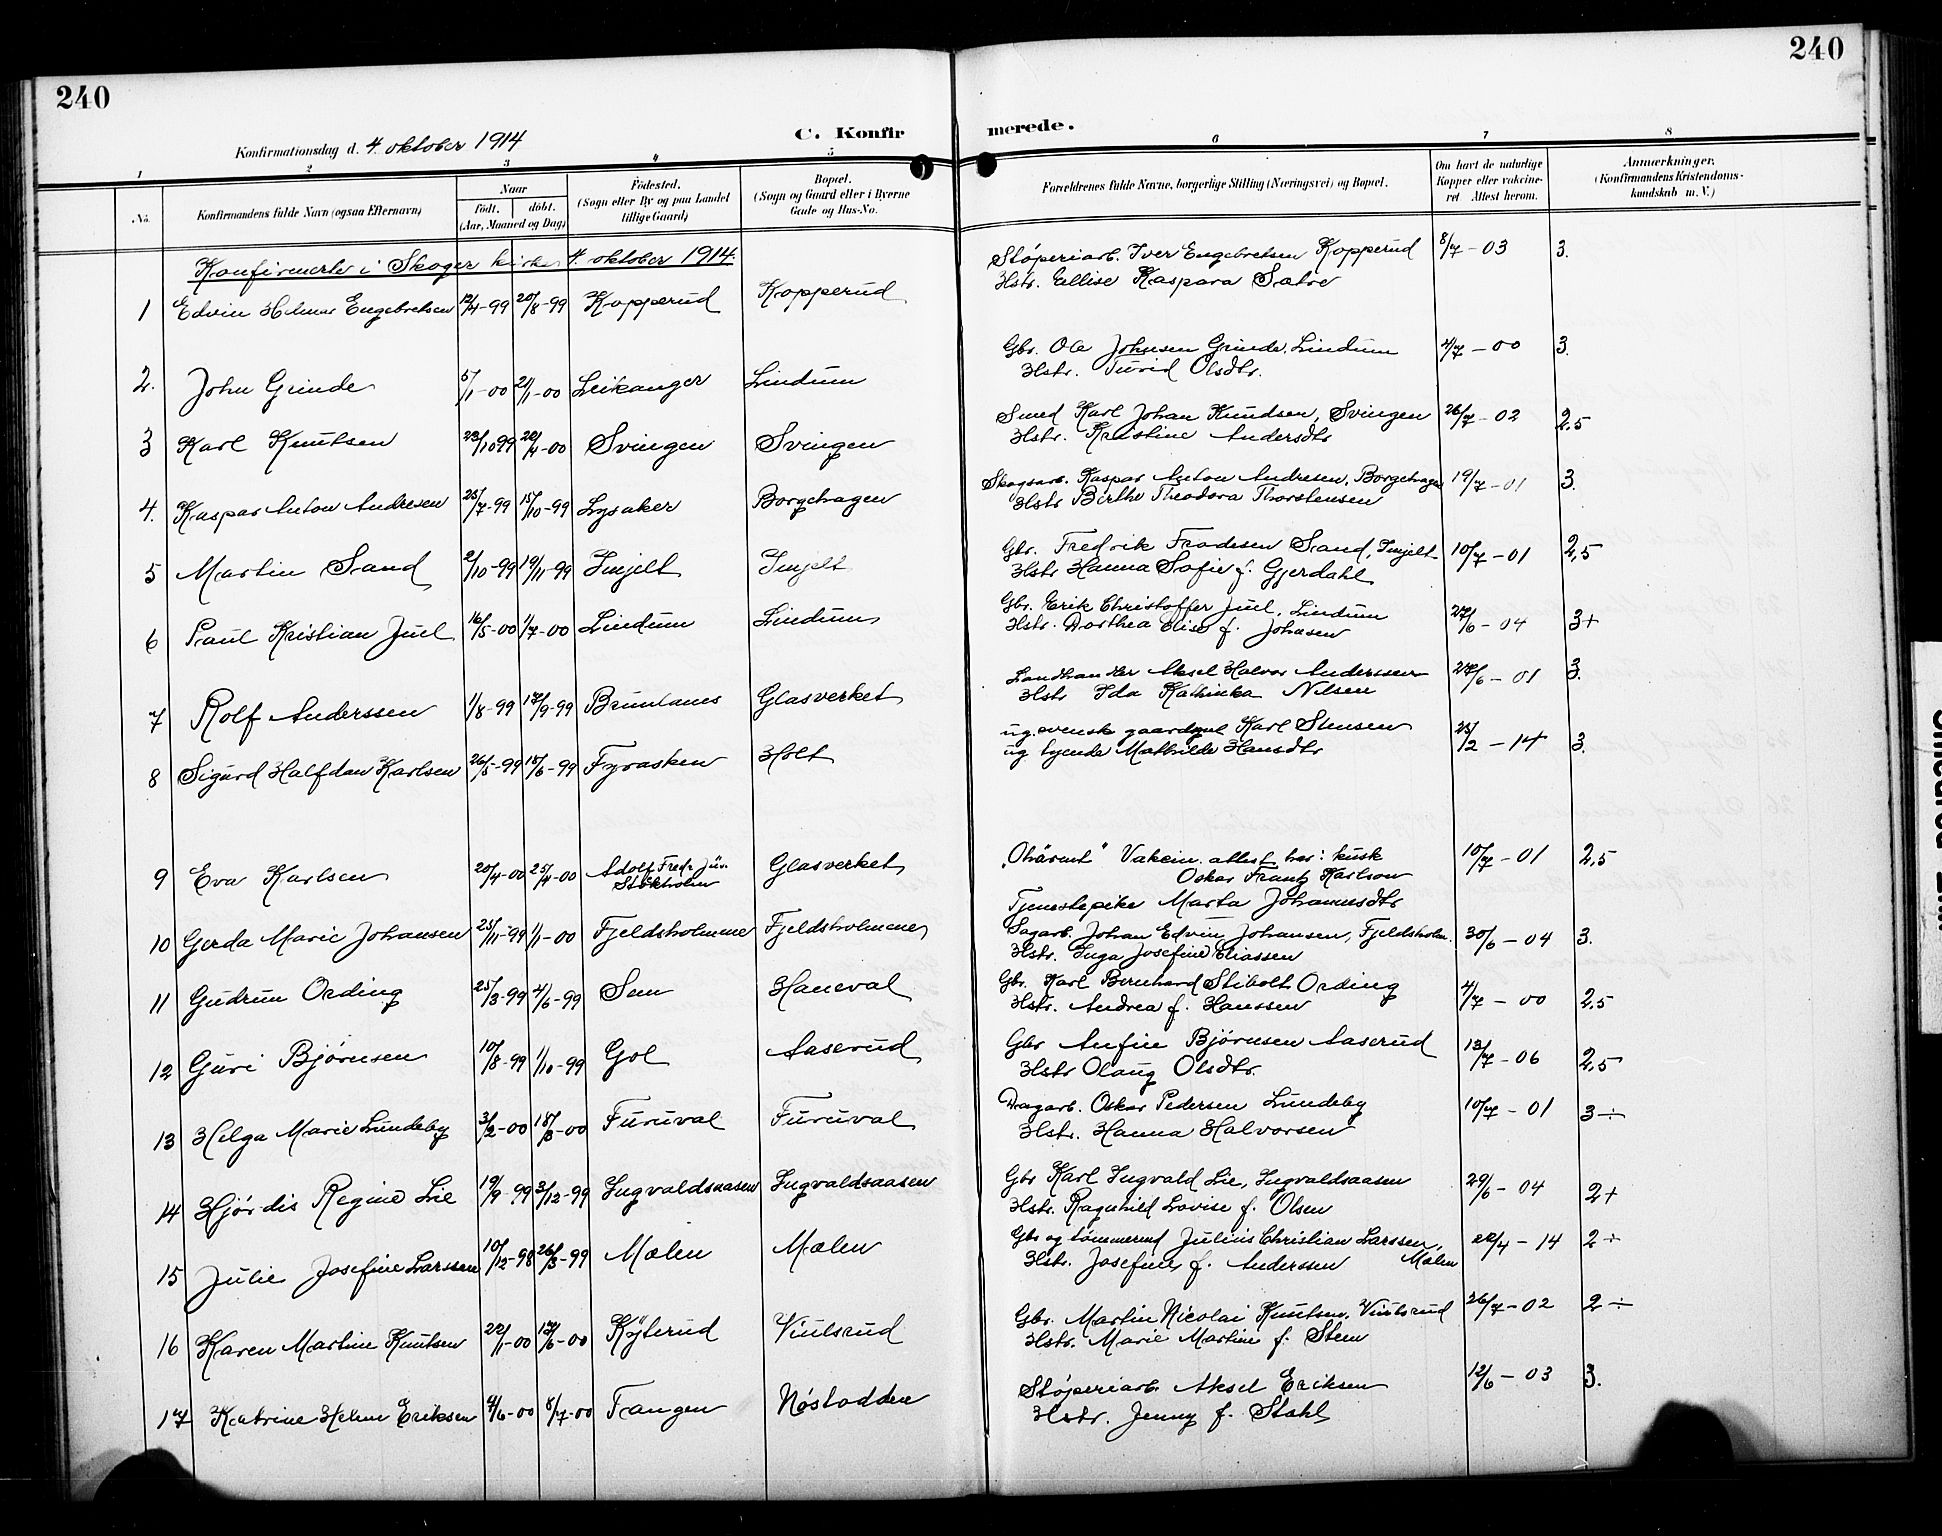 240
240
Konfirmationsdag d. 4. oktober 1914
C. Konfirmerede.
1 2 3 4 5 6 7 8
No.
Konfirmandens fulde Navn (ogsaa Efternavn)
Naar
født. døbt.
(Aar, Maaned og Dag)
Fødested.
(Sogn eller By og paa Landet
tillige Gaard)
Bopæl.
(Sogn og Gaard eller i Byerne
Gade og Hus-No.
Forældrenes fulde Navne, borgerlige Stilling (Næringsvei) og Bopæl.
Om havt de naturlige
Kopper eller vakcine-
ret Attest herom.
Anmærkninger.
(Konfirmandens Kristendoms-
kundskab m. V.)
Konfirmerte i Skoger kirke 4. oktober 1914.
1 Edvin Helmer Engebretsen 12/4-99 20/8-99 Kopperud Kopperud Støperiarb. Iver Engebretsen Kopperud 8/7-03 3.
Hstr. Ellise Kaspara Sætre
2. John Grinde 5/1-00 21/1-00 Leikanger Lindum Gbr. Ole Johnsen Grinde, Lindum 4/7-00 3.
Hstr. Turid Olsdtr.
3 Karl Knutsen 23/10 99 22/4-00 Svingen Svingen Smed Karl Johan Knudsen, Svingen 26/7-02 2,5
Hstr. Kristine Andersdtr
4. Kaspar Anton Andresen 25/7-99 15/10-99 Lysaker Borgehagen Skogsarb. Kaspar Anton Andresen, Borgehagen 19/7-01 3.
Hstr Birthe Theodora Thorstensen
5 Martin Sand 2/10-99 19/11-99 Imjelt Imjelt Gbr. Fredrik Fradesen Sand, Imjelt 10/7-01 2,5
Hstr Hanna Sofie f. Gjerdahl
6 Paul Kristian Juel 16/5-00 1/7-00 Lindum Lindum Gbr. Erik Christoffer Juel, Lindum 27/6-04 3+
Hstr. Dorthea Elise f. Johnsen
7 Rolf Anderssen 1/8-99 17/9-99 Brunlanes Glasverket Landhandler Aksel Halvor Anderssen 27/6-01 3.
Hstr Ida Kathinka Nilsen
8 Sigurd Halfdan Karlsen 26/5-99 18/6-99 Fyrasken Holt ug. svensk gaardgut Karl Stensen 23/2-14 3.
ug tyende Mathilde Hansdtr
9 Eva Karlsen 20/4-00 25/4-00 Adolf Fredr. Stockholm Glasverket Vakcin. attest har: kusk 10/7-01 2,5
Oskar Frantz Karlson
Tjenestepike Marta Johannesdtr
10 Gerda Marie Johansen 25/11-99 1/1-00 Fjeldsholmene Fjeldsholmene Sagarb. Johan Edvin Johansen, Fjeldsholm. 30/6-04 3.
Hstr. Inga Josefine Eliassen
11 Gudrun Ording 25/3-99 4/6-99 Sem Haneval Gbr. Karl Bernhard Stibolt Ording 4/7-00 2,5
Hstr. Andrea f. Hanssen
12 Guri Bjørnsen 10/8-99 1/10-99 Gol Aaserud Gbr Anfin Bjørnsen Aaserud 13/7-06 2,5
Hstr Olaug Olsdtr.
13 Helga Marie Lundeby 3/2-00 18/3-00 Furuval Furuval Dagarb. Oskar Pedersen Lundeby 10/7-01 3÷
Hstr. Hanna Halvorsen
14 Hjørdis Regine Lie 19/9-99 3/12-99 Ingvaldsaasen Ingvaldsaasen Gbr Karl Ingvald Lie, Ingvaldsaasen 29/6-04 2+
Hstr. Ragnhild Lovise f. Olsen
15 Julie Josefine Larssen 10/12-98 26/3-99 Mælen Mælen Gbr og tømmermd Julius Christian Larssen, 22/4-14 2÷
Hstr. Josefine f. Anderssen Mælen
16 Karen Martine Knutsen 22/1-00 17/6-00 Kjyterud Viulsrud Gbr. Martin Nicolai Knutsen, Viulsrud 26/7-02 2÷
Hstr. Marie Martine f. Stem
17 Katrine Helene Eriksen 4/6-00 8/7-00 Tangen Nøstodden Støperiarb. Aksel Eriksen 12/6-03 3.
Hstr. Jenny f. Stahl